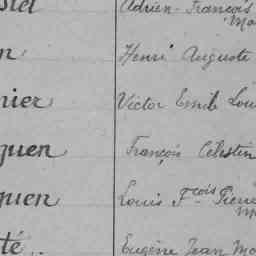 Adrien-François
Henri Auguste
nier Victor Emile Lou
guen François Célestin
guen Louis Fcois Pierre
té Eugène Jean Ma